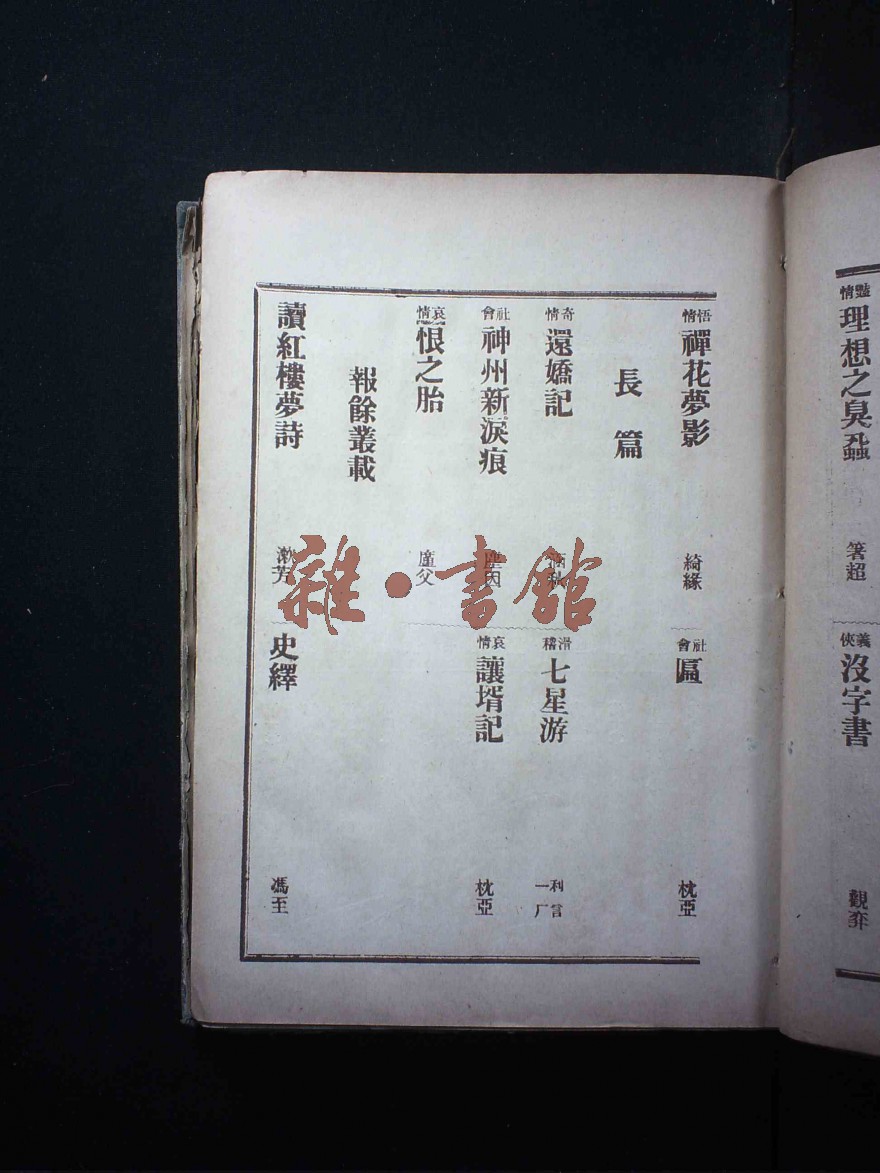 豔情 理想之臭蝨 箸超
義俠 沒字書 觀弈
悟情 禪花夢影 綺緣
社會 匾 枕亞
長篇
奇情 還嬌記
滑稽 七星游 利言 一厂
社會 神州新淚痕 塵因
哀情 讓壻記 枕亞
哀情 恨之胎 廑父
報餘叢載
讀紅樓夢詩 漱芳
史繹 馮至
雜·書館